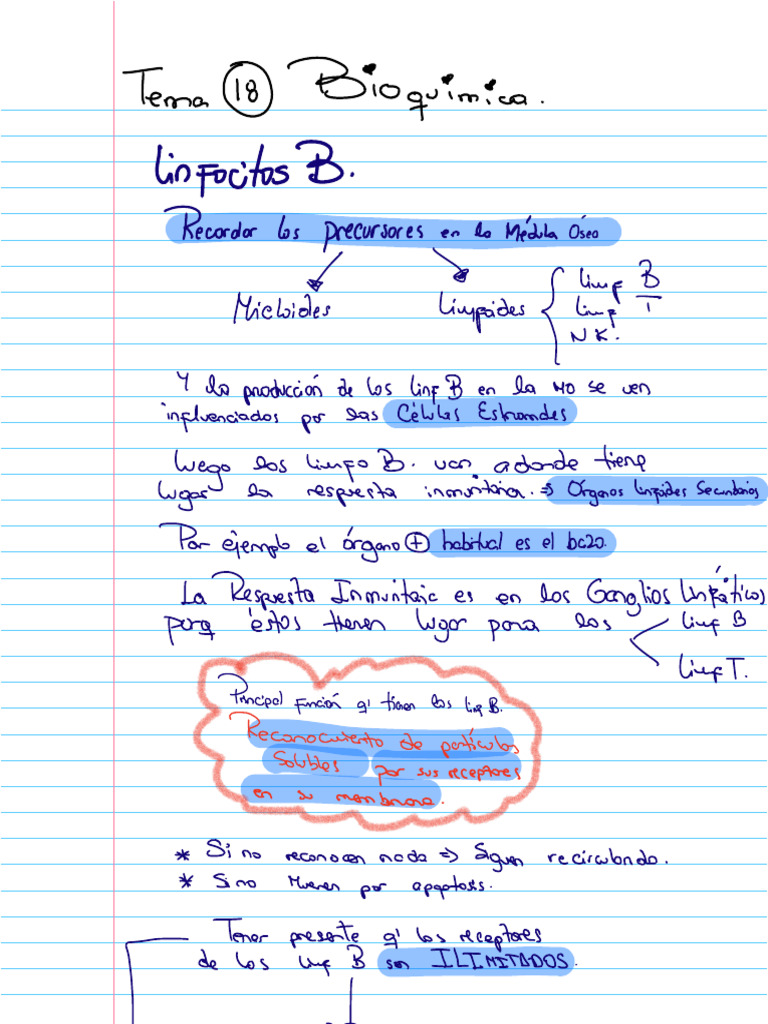 Tema 18 Bioquimica.
Linfocitos B.
Recordar los precursores en la Médula Ósea
Mieloides
Linfoides
Linf B
Linf T
NK.
Y la producción de los linf B en la MO se ven
influenciados por las Células Estromales
Luego los linfo B. van a donde tiene
lugar la respuesta inmunitaria. => Órganos linfoides Secundarios
Por ejemplo el órgano + habitual es el bazo.
La Respuesta Inmunitaria es en los Ganglios Linfáticos
porq éstos tienen lugar para los
Linf B
Linf T.
Principal función q' tienen los linf B.
Reconocimiento de partículas
Solubles por sus receptores
en su membrana.
* Si no reconocen nada => Siguen recirculando.
* Sino Mueren por apoptosis.
Tener presente q' los receptores
de los linf B son ILIMITADOS.